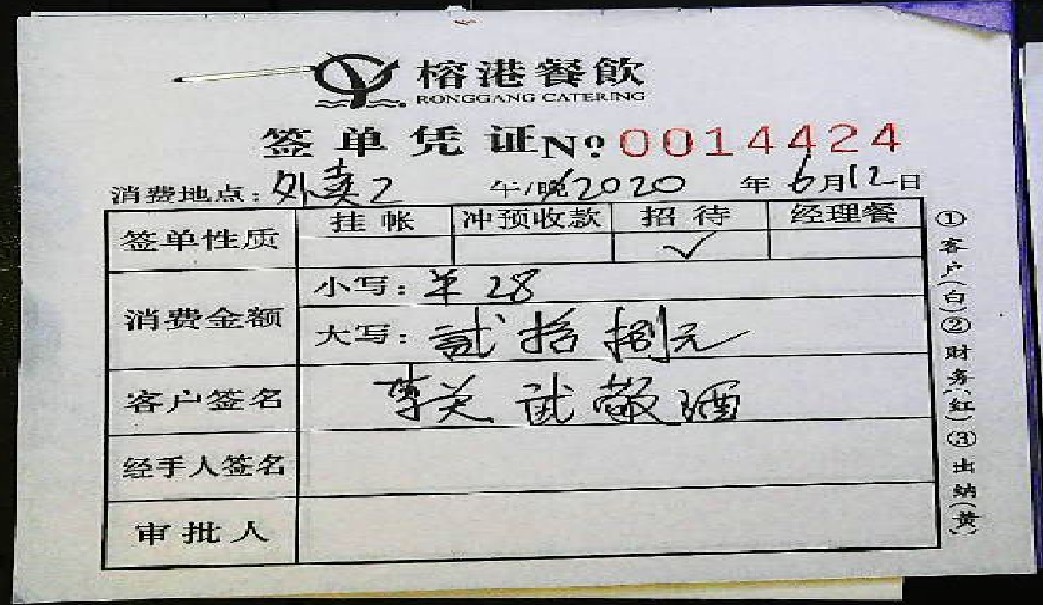 榕港餐飲
RONGGANG CATERING
签单凭证No: 0014424
消费地点：外卖2 午/晚 2020 年 6月12日
签单性质 挂帐 冲预收款 招待 经理餐
✓
消费金额 小写：羊 28
大写：贰拾捌元
客户签名 敬酒
经手人签名
审批人
①客户(白)②财务(红)③出纳(黄)